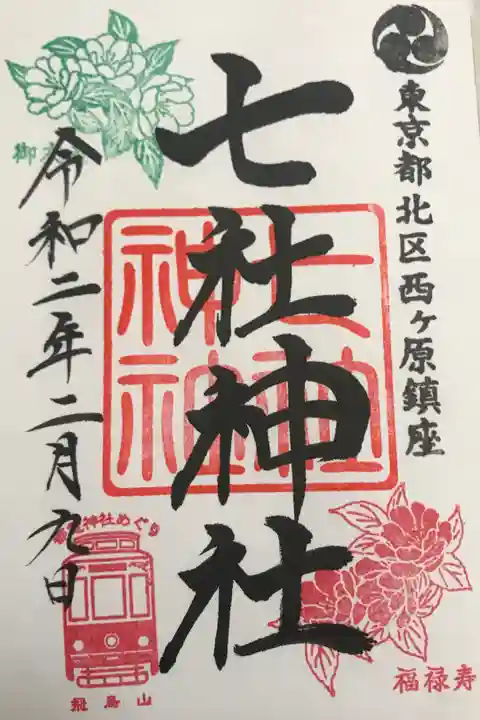 東京都北区西ヶ原鎮座
七社神社
七社
神社
令和二年二月九日
神社めぐり
飛鳥山
福禄寿